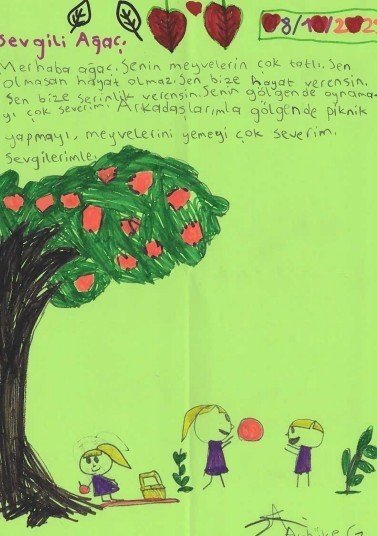 Sevgili Ağaç,
Merhaba ağaç. Senin meyvelerin çok tatlı. Sen
olmasan hayat olmaz. Sen bize hayat verensin.
Sen bize serinlik verensin. Senin gölgende oynama-
yı çok severim. Arkadaşlarımla gölgende piknik
yapmayı, meyvelerini yemeyi çok severim.
Sevgilerimle.